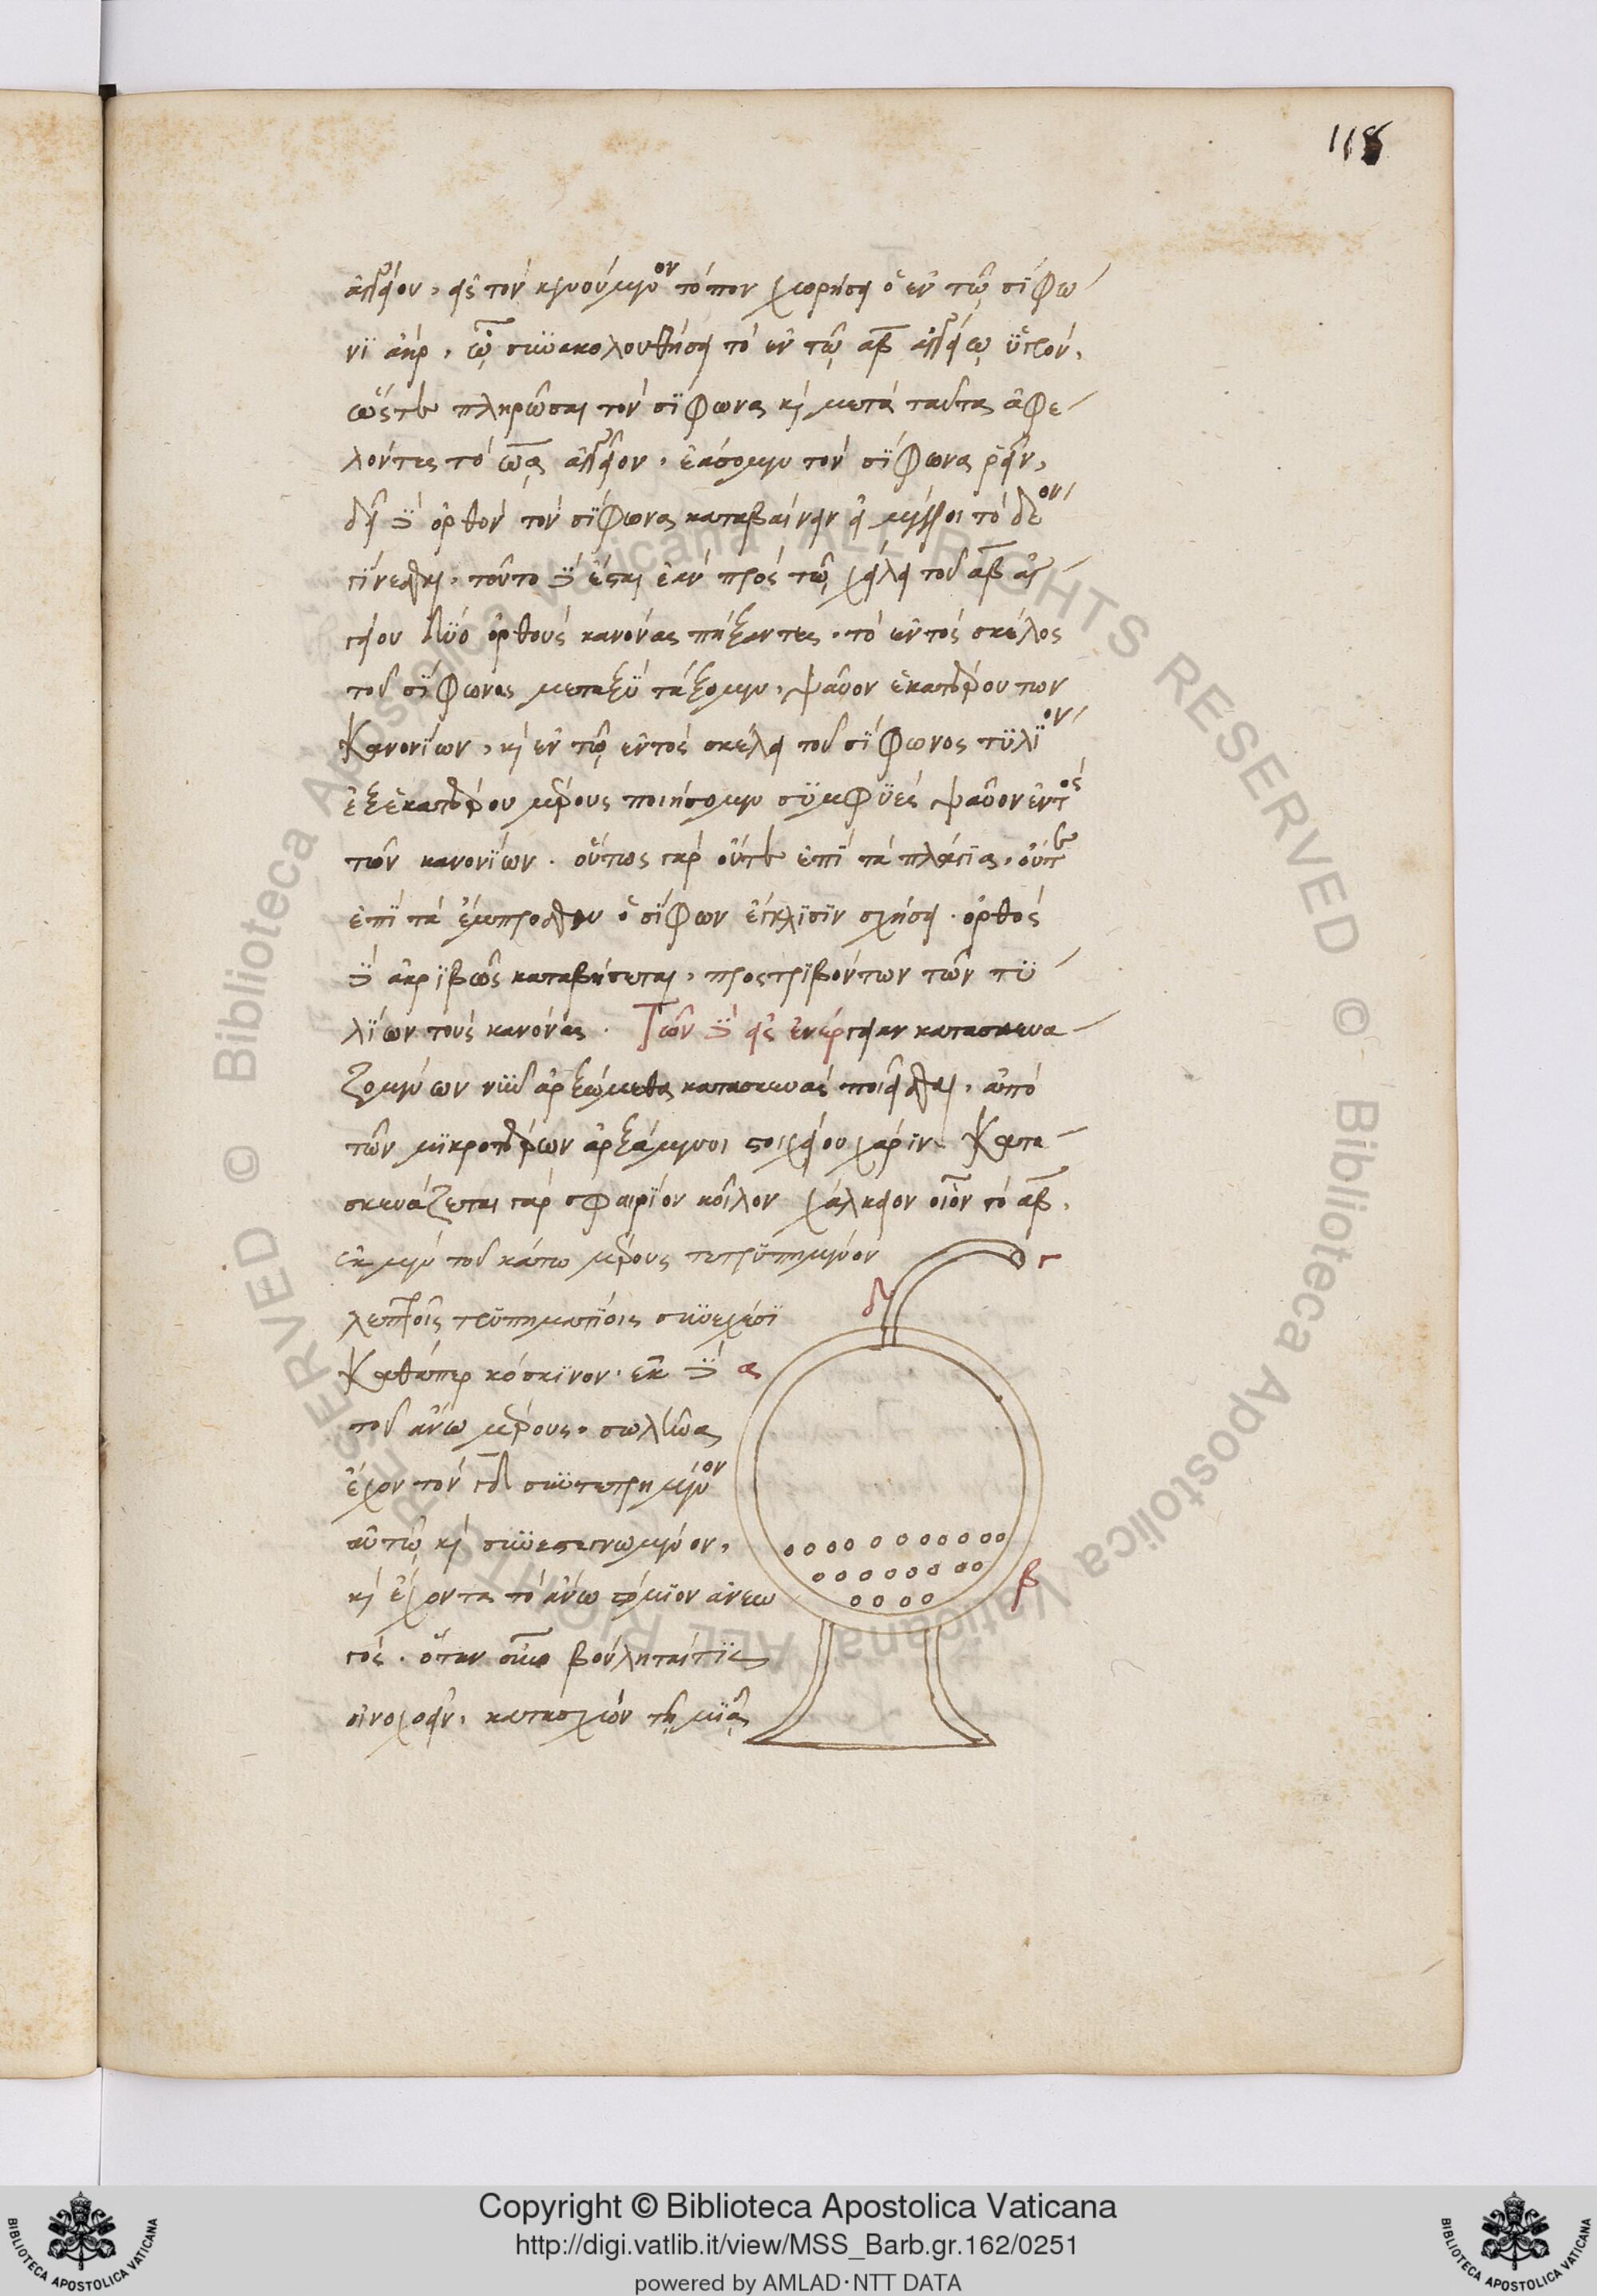 118
ἀγγείου, εἰς τὸν κενούμενον τόπον χωρήσει ὁ ἐν τῷ σίφω
νι ἀήρ, ᾧ συνακολουθήσει τὸ ἐν τῷ αβ ἀγγείῳ ὑγρόν,
ὥστε πληρῶσαι τὸν σίφωνα καὶ μετὰ ταῦτα ἀφε
λόντες τὸ ἀγγεῖον, ἐάσομεν τὸν σίφωνα ῥεῖν,
δεῖ δὲ ὀρθὸν τὸν σίφωνα καταβαίνειν εἰ μέλλοι τὸ δέον
γίνεσθαι, τοῦτο δὲ ἔσται ἐὰν πρὸς τῷ χείλει τοῦ αβ ἀγ
γείου δύο ὀρθοὺς κανόνας πήξαντες, τὸ ἐντὸς σκέλος
τοῦ σίφωνος μεταξὺ τάξομεν, ψαῦον ἑκατέρου των
κανονίων, καὶ ἐν τῷ ἐντὸς σκέλει τοῦ σίφωνος τύλιον
ἐξ ἑκατέρου μέρους ποιήσομεν συμφυὲς ψαῦον ἐντὸς
τῶν κανονίων. οὕτως γὰρ οὔτε ἐπὶ τὰ πλάγια, οὔτε
ἐπὶ τὰ ἔμπροσθεν ὁ σίφων ἔγκλισιν σχήσει. ὀρθὸς
δὲ ἀκριβῶς καταβήσεται, προστριβόντων τῶν τυ
λίων τοὺς κανόνας. Τῶν δὲ εἰς ἐνέργειαν κατασκευα
ζομένων νῦν ἀρξώμεθα κατασκευὰς ποιεῖσθαι, ἀπὸ
τῶν μικροτέρων ἀρξάμενοι στοιχείου χάριν. Κατα
σκευάζεται γὰρ σφαιρίον κοῖλον χάλκειον οἷον τὸ αβ,
ἐκ μὲν τοῦ κάτω μέρους τετρυπημένον
λεπτοῖς τρυπηματίοις συνεχέσι
καθάπερ κόσκινον. ἐκ δὲ
τοῦ ἄνω μέρους, σωλῆνα
ἔχον τὸν γδ συντετρημένον
αὐτῷ καὶ συνεστεγνωμένον,
καὶ ἔχοντα τὸ ἄνω στόμιον ἀνεῳ
γός. ὅταν οὖν βούληταί τις
οἰνοχοεῖν, κατασχὼν τῇ μιᾷ
γ
δ
α
β
Copyright © Biblioteca Apostolica Vaticana
http://digi.vatlib.it/view/MSS_Barb.gr.162/0251
powered by AMLAD·NTT DATA
BIBLIOTECA APOSTOLICA VATICANA
BIBLIOTECA APOSTOLICA VATICANA
© Biblioteca Apostolica Vaticana ALL RIGHTS RESERVED
© Biblioteca Apostolica Vaticana ALL RIGHTS RESERVED